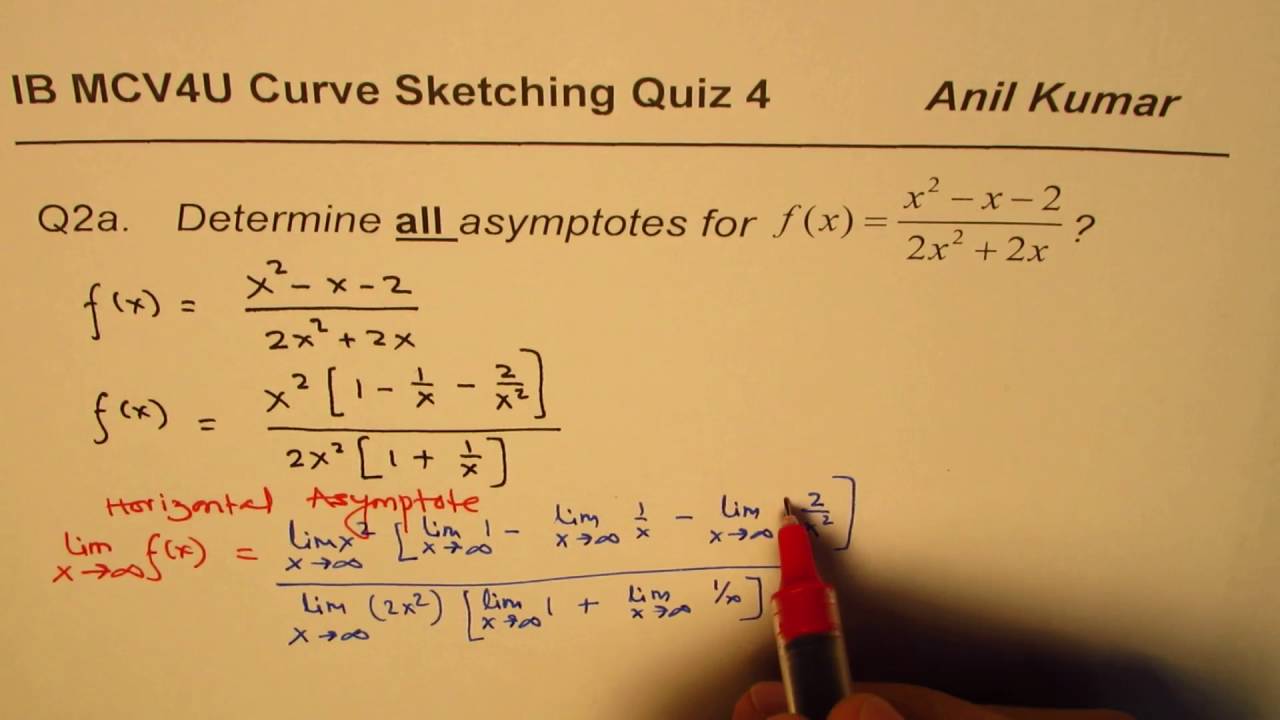 IB MCV4U Curve Sketching Quiz 4 Anil Kumar
Q2a. Determine all asymptotes for f(x) = (x² − x − 2)/(2x² + 2x) ?
f(x) = (x² − x − 2)/(2x² + 2x)
f(x) = x² [1 − 1/x − 2/x²] / 2x² [1 + 1/x]
Horizontal Asymptote
lim x→∞ f(x) = lim x→∞ x² [lim x→∞ 1 − lim x→∞ 1/x − lim x→∞ 2/x²] / lim x→∞ (2x²) [lim x→∞ 1 + lim x→∞ 1/x]